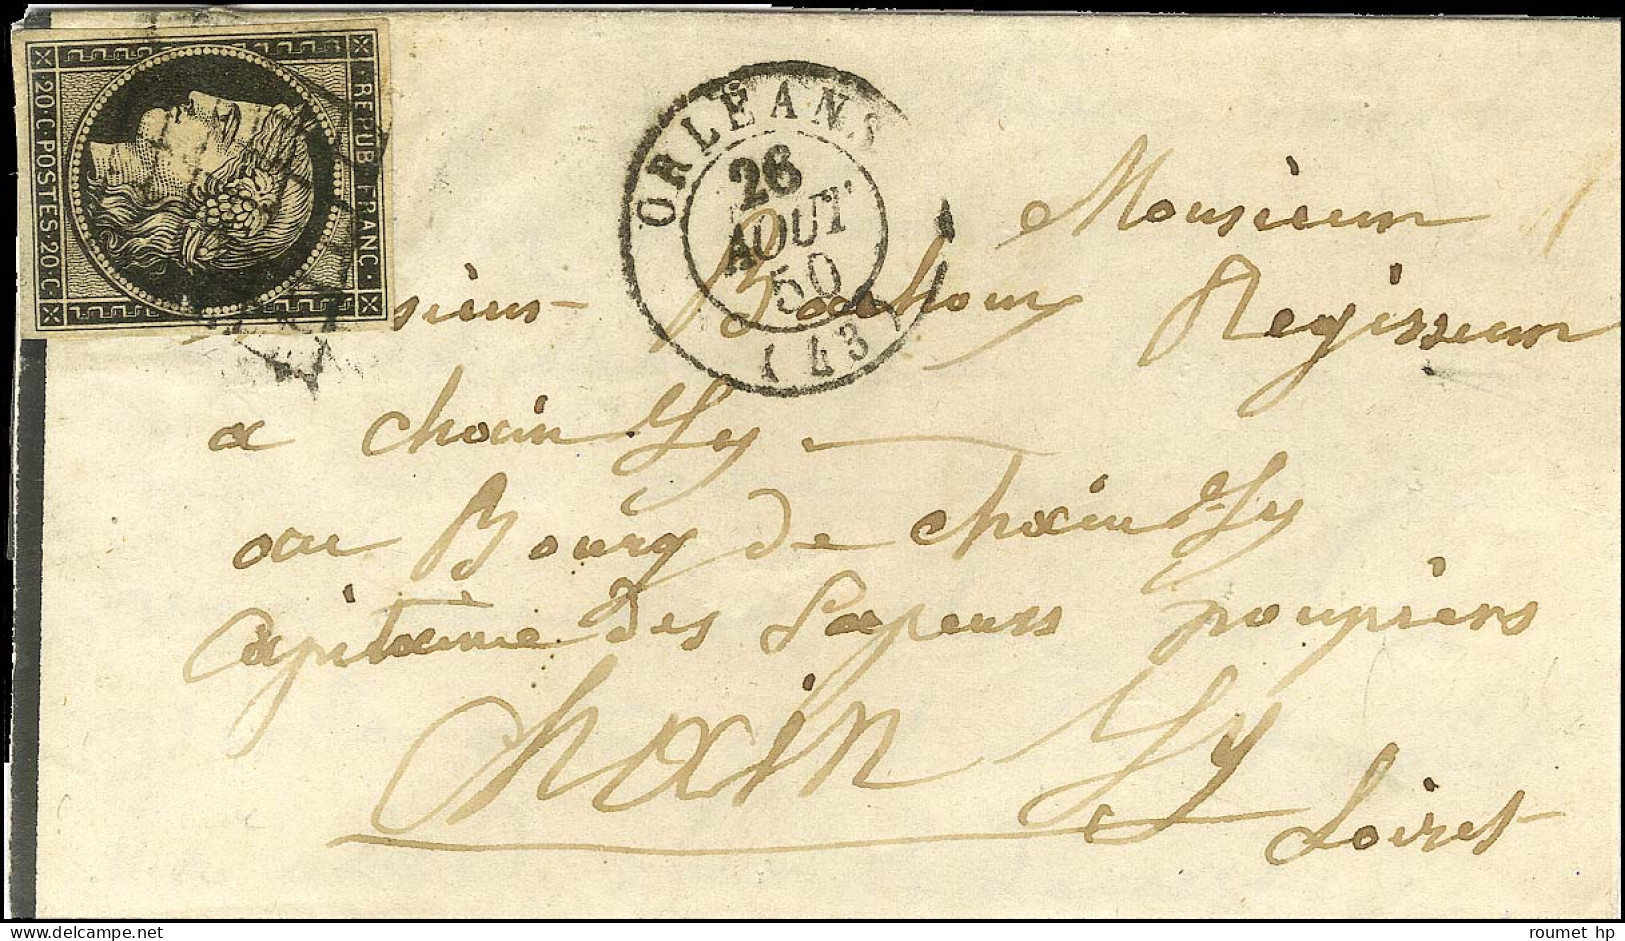 REPUB·FRANC·
20·C·POSTES·20·C
ORLÉANS
26
AOUT
50
(43)
Monsieur
sieur Bachoux Regisseur
a choin gy
au Bourg de choin gy
Capitaine des Sapeurs poupiers
Choin gy
Loiret
roumet hp